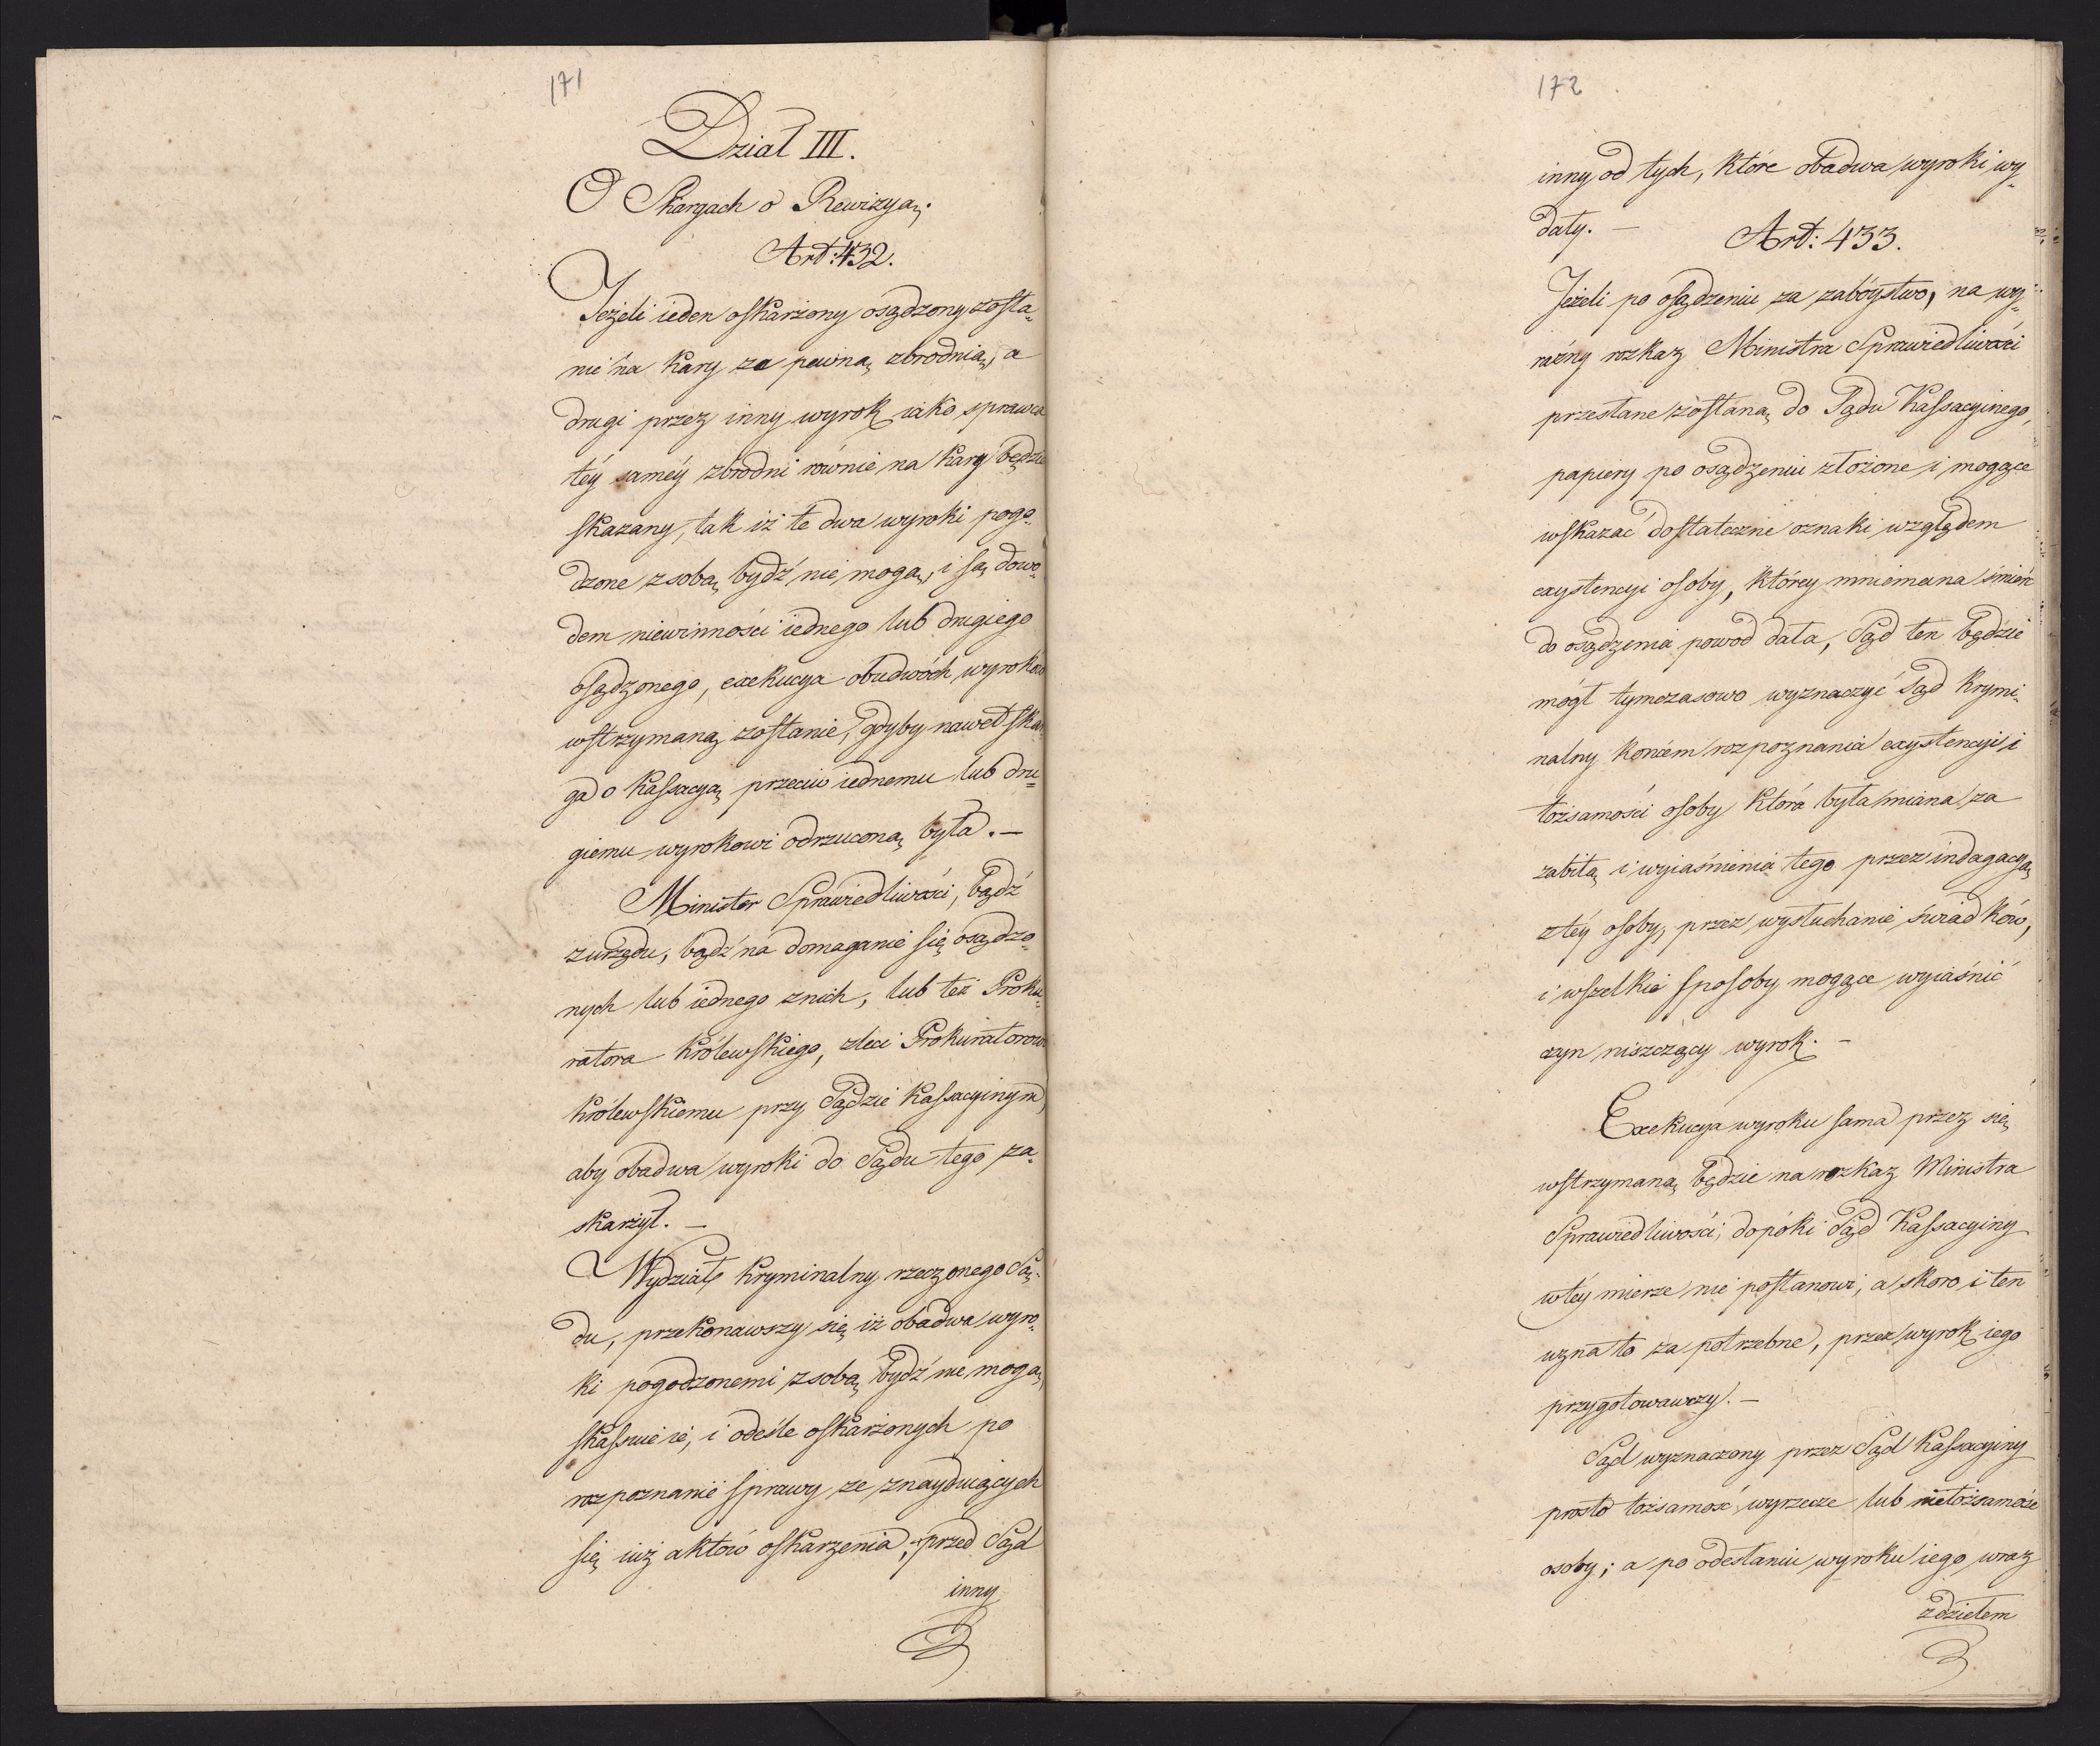 171
Dział III.
O Skargach o Rewizyą.
Art: 432.
Jeżeli ieden oskarżony osądzony zosta„
nie na kary za pewną zbrodnią, a
drugi przez inny wyrok iako sprawca
téy saméy zbrodni równie na kary będzie
skazany, tak iż te dwa wyroki pogo„
dzone z sobą bydź nie mogą, i są dowo„
dem niewinności iednego lub drugiego
osądzonego, exekucya obudwóch wyroków
wstrzymaną zostanie, gdyby nawet skar„
ga o kassacyą przeciw iednemu lub dru„
giemu wyrokowi odrzuconą była. —
Minister Sprawiedliwości, bądź
z urzędu, bądź na domaganie się osądzo„
nych lub iednego z nich, lub też Proku„
ratora Królewskiego, zleci Prokuratorowi
Królewskiemu przy Sądzie Kassacyinym,
aby obadwa wyroki do Sądu tego za„
skarżył. —
Wydział Kryminalny rzeczonego Są„
du, przekonawszy się iż obadwa wyro„
ki pogodzonemi z sobą bydź nie mogą,
skassuie ie, i odeśle oskarżonych po
rozpoznanie sprawy ze znayduiących
się iuż aktów oskarzenia, przed Sąd
inny
172
inny od tych, które obadwa wyroki wy„
dały. —
Art: 433.
Jeżeli po osądzeniu za zabóystwo, na wy„
raźny rozkaz Ministra Sprawiedliwości
przesłane zostaną do Sądu Kassacyinego,
papiery po osądzeniu złożone i mogące
wskazać dostateczne oznaki względem
exystencyi osoby, którey mniemana śmierć
do osądzenia powod dała, Sąd ten będzie
mógł tymczasowo wyznaczyć Sąd Krymi„
nalny końcem rozpoznania exystencyi i
tożsamości osoby która była miana za
zabitą i wyiaśnienia tego przez indagacyą
z téy osoby, przez wysłuchanie świadków,
i wszelkie sposoby mogące wyiaśnić
czyn niszczący wyrok. —
Exekucya wyroku sama przez się
wstrzymaną będzie na rozkaz Ministra
Sprawiedliwości, dopóki Sąd Kassacyiny
w téy mierze nie postanowi, a skoro i ten
uzna to za potrzebne, przez wyrok iego
przygotowawczy. —
Sąd wyznaczony przez Sąd Kassacyiny
prosto tożsamość wyrzecze lub nietożsamość
osoby; a po odesłaniu wyroku iego wraz
z dziełem